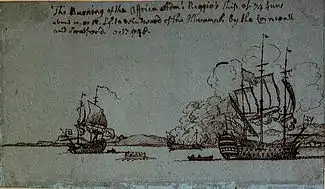 The Burning of the Africa Adm. Reggio's Ship of 74 Guns
about 10 or 12 Lgs to windward of the Havanah by the Cornwall
and Strafford oct. 1748.